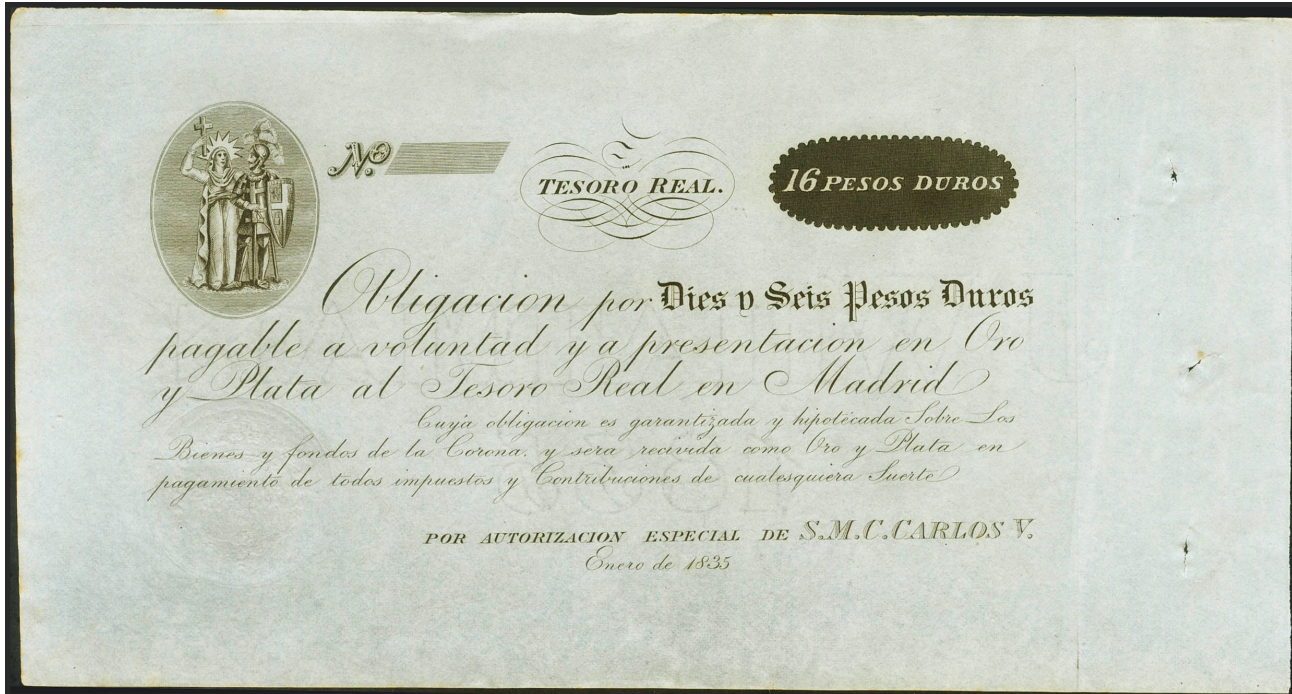 Nº
TESORO REAL.
16 PESOS DUROS
Obligacion por Dies y Seis Pesos Duros
pagable a voluntad y a presentacion en Oro
y Plata al Tesoro Real en Madrid
Cuya obligacion es garantizada y hipotecada Sobre Los
Bienes y fondos de la Corona. y sera recivida como Oro y Plata en
pagamiento de todos impuestos y Contribuciones de cualesquiera Suerte
POR AUTORIZACION ESPECIAL DE S.M.C. CARLOS V.
Enero de 1835